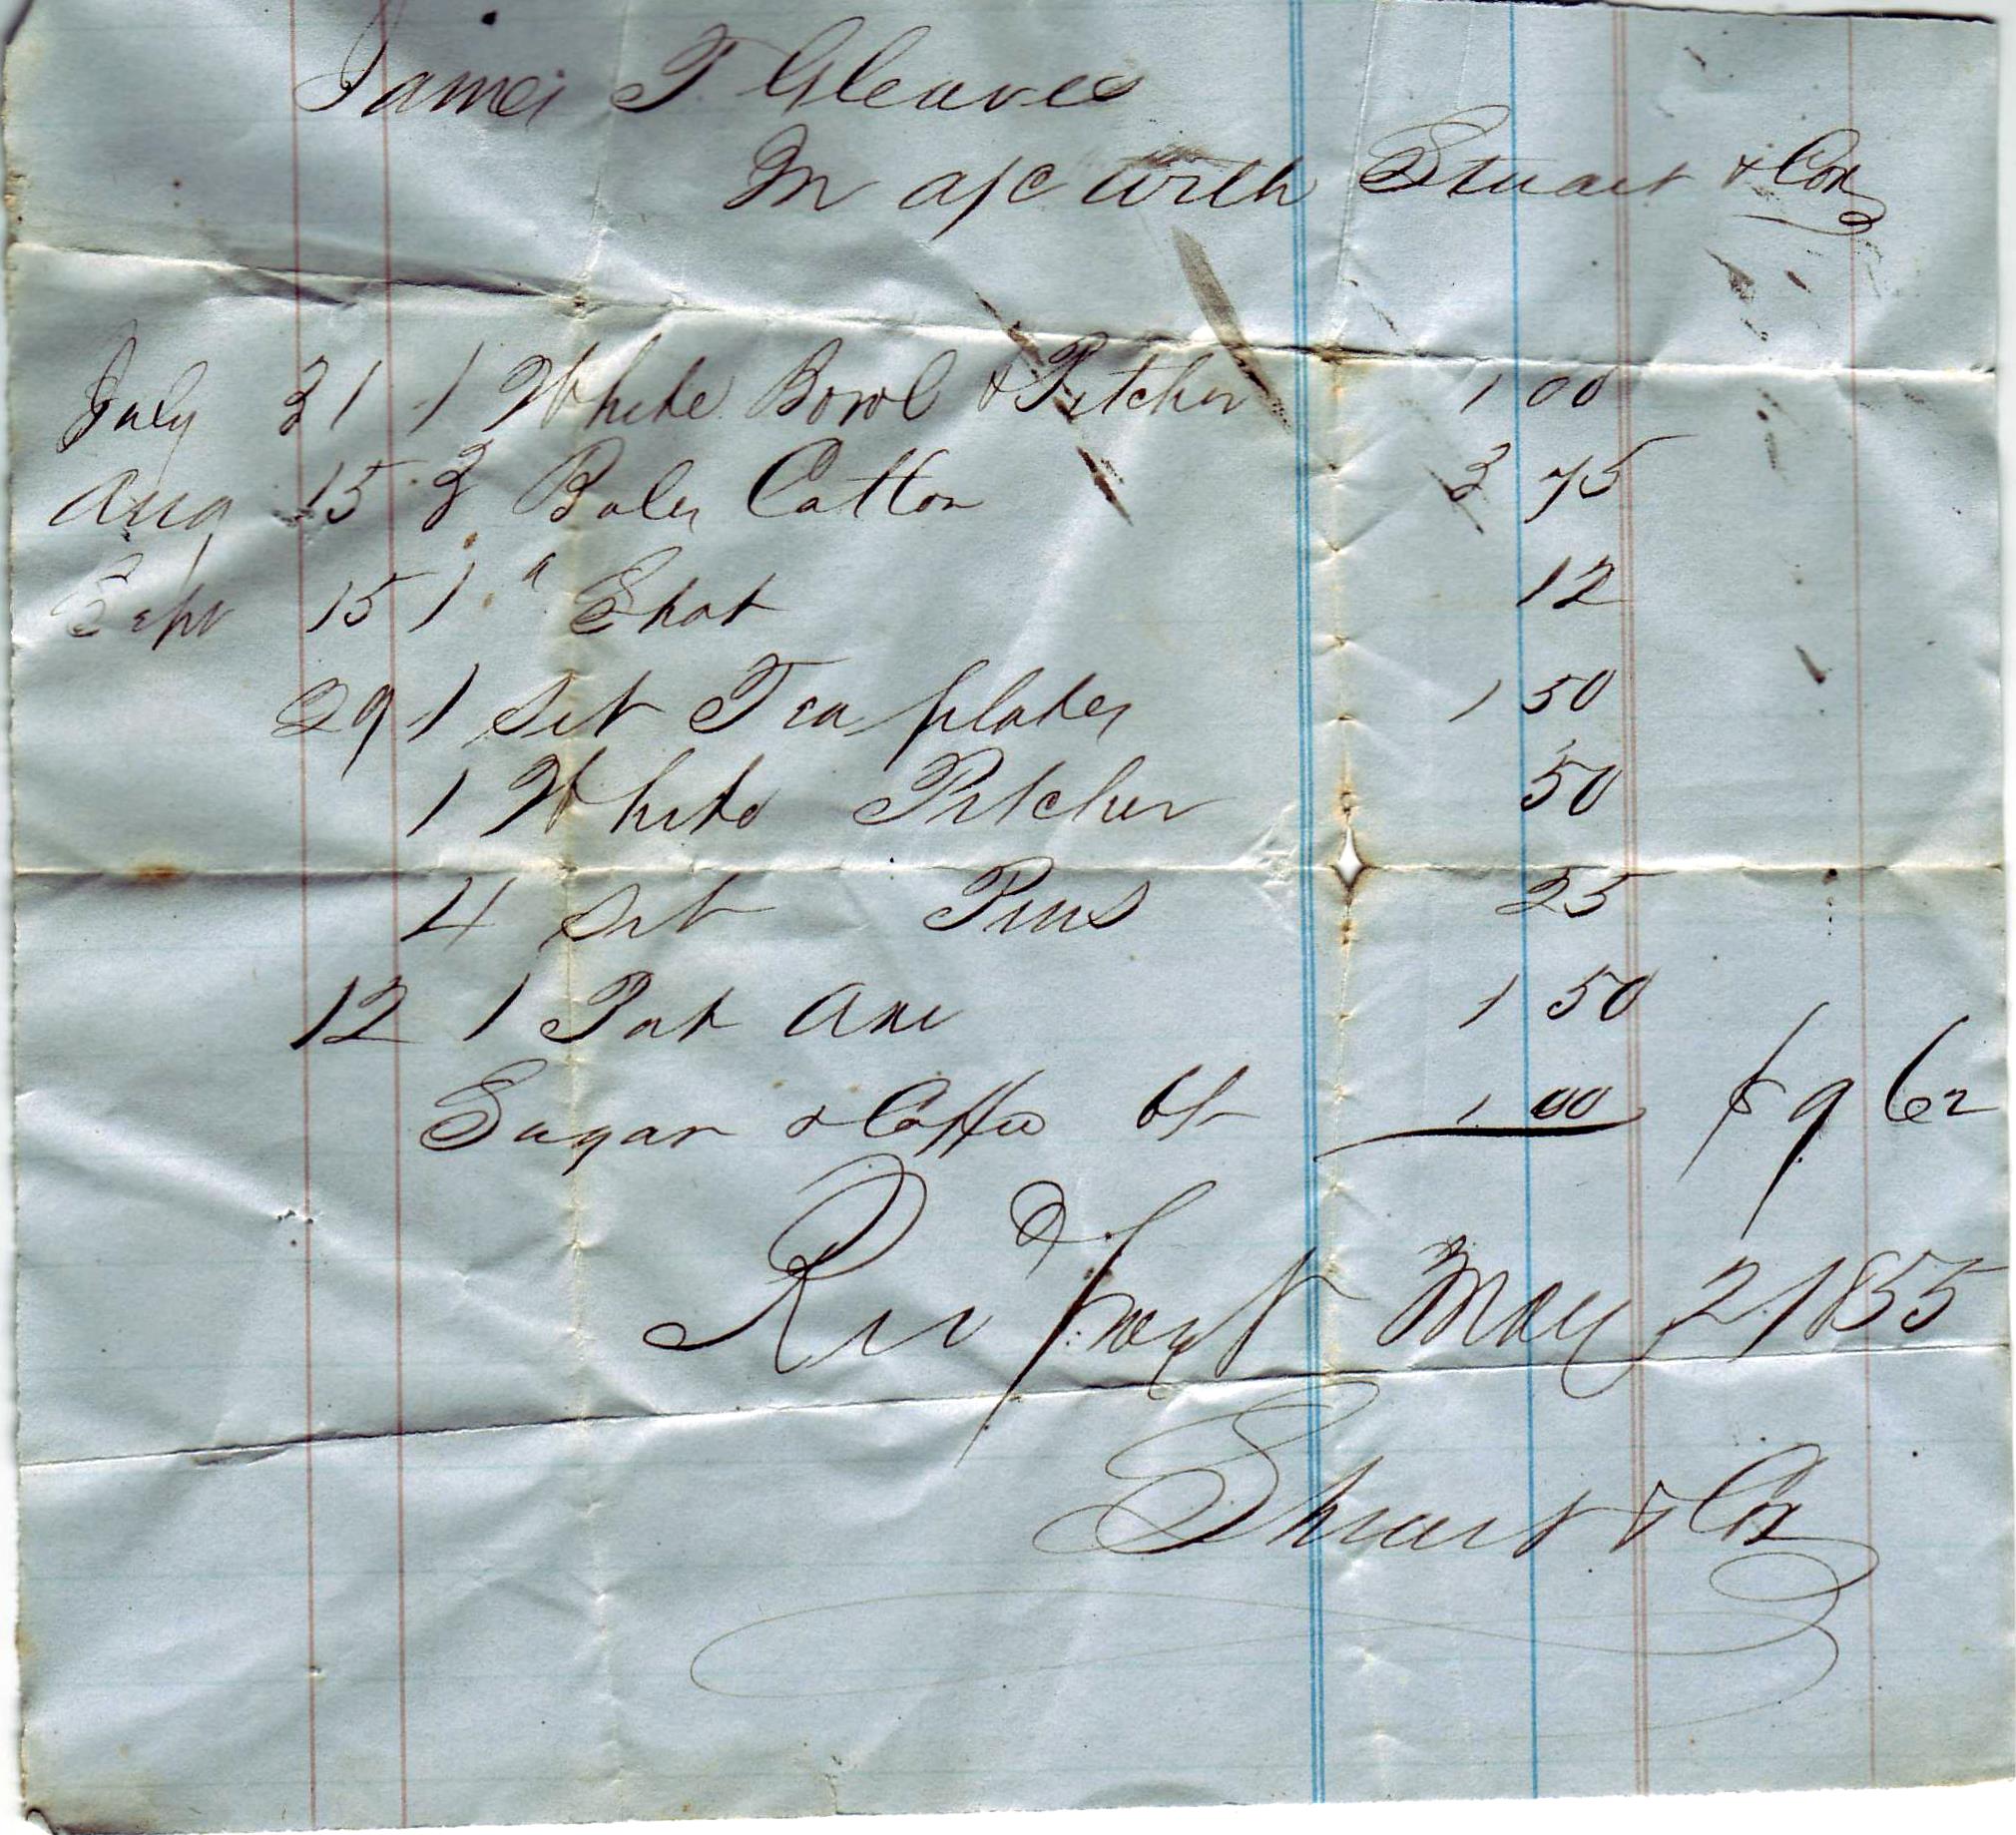 James T Gleaves
In a/c with Stuart & Cox
July 31 1 White Bowl & Pitcher 1 00
Aug 15 3 Bales Cotton 3 75
Sept 15 1 " Shot 12
29 1 Set Tea plates 1 50
1 White Pitcher 50
4 Set Pins 25
12 1 Pat Axe 1 50
Sugar & Coffee 1 00 $9 62
Recd payt May 2 1855
Stuart & Cox